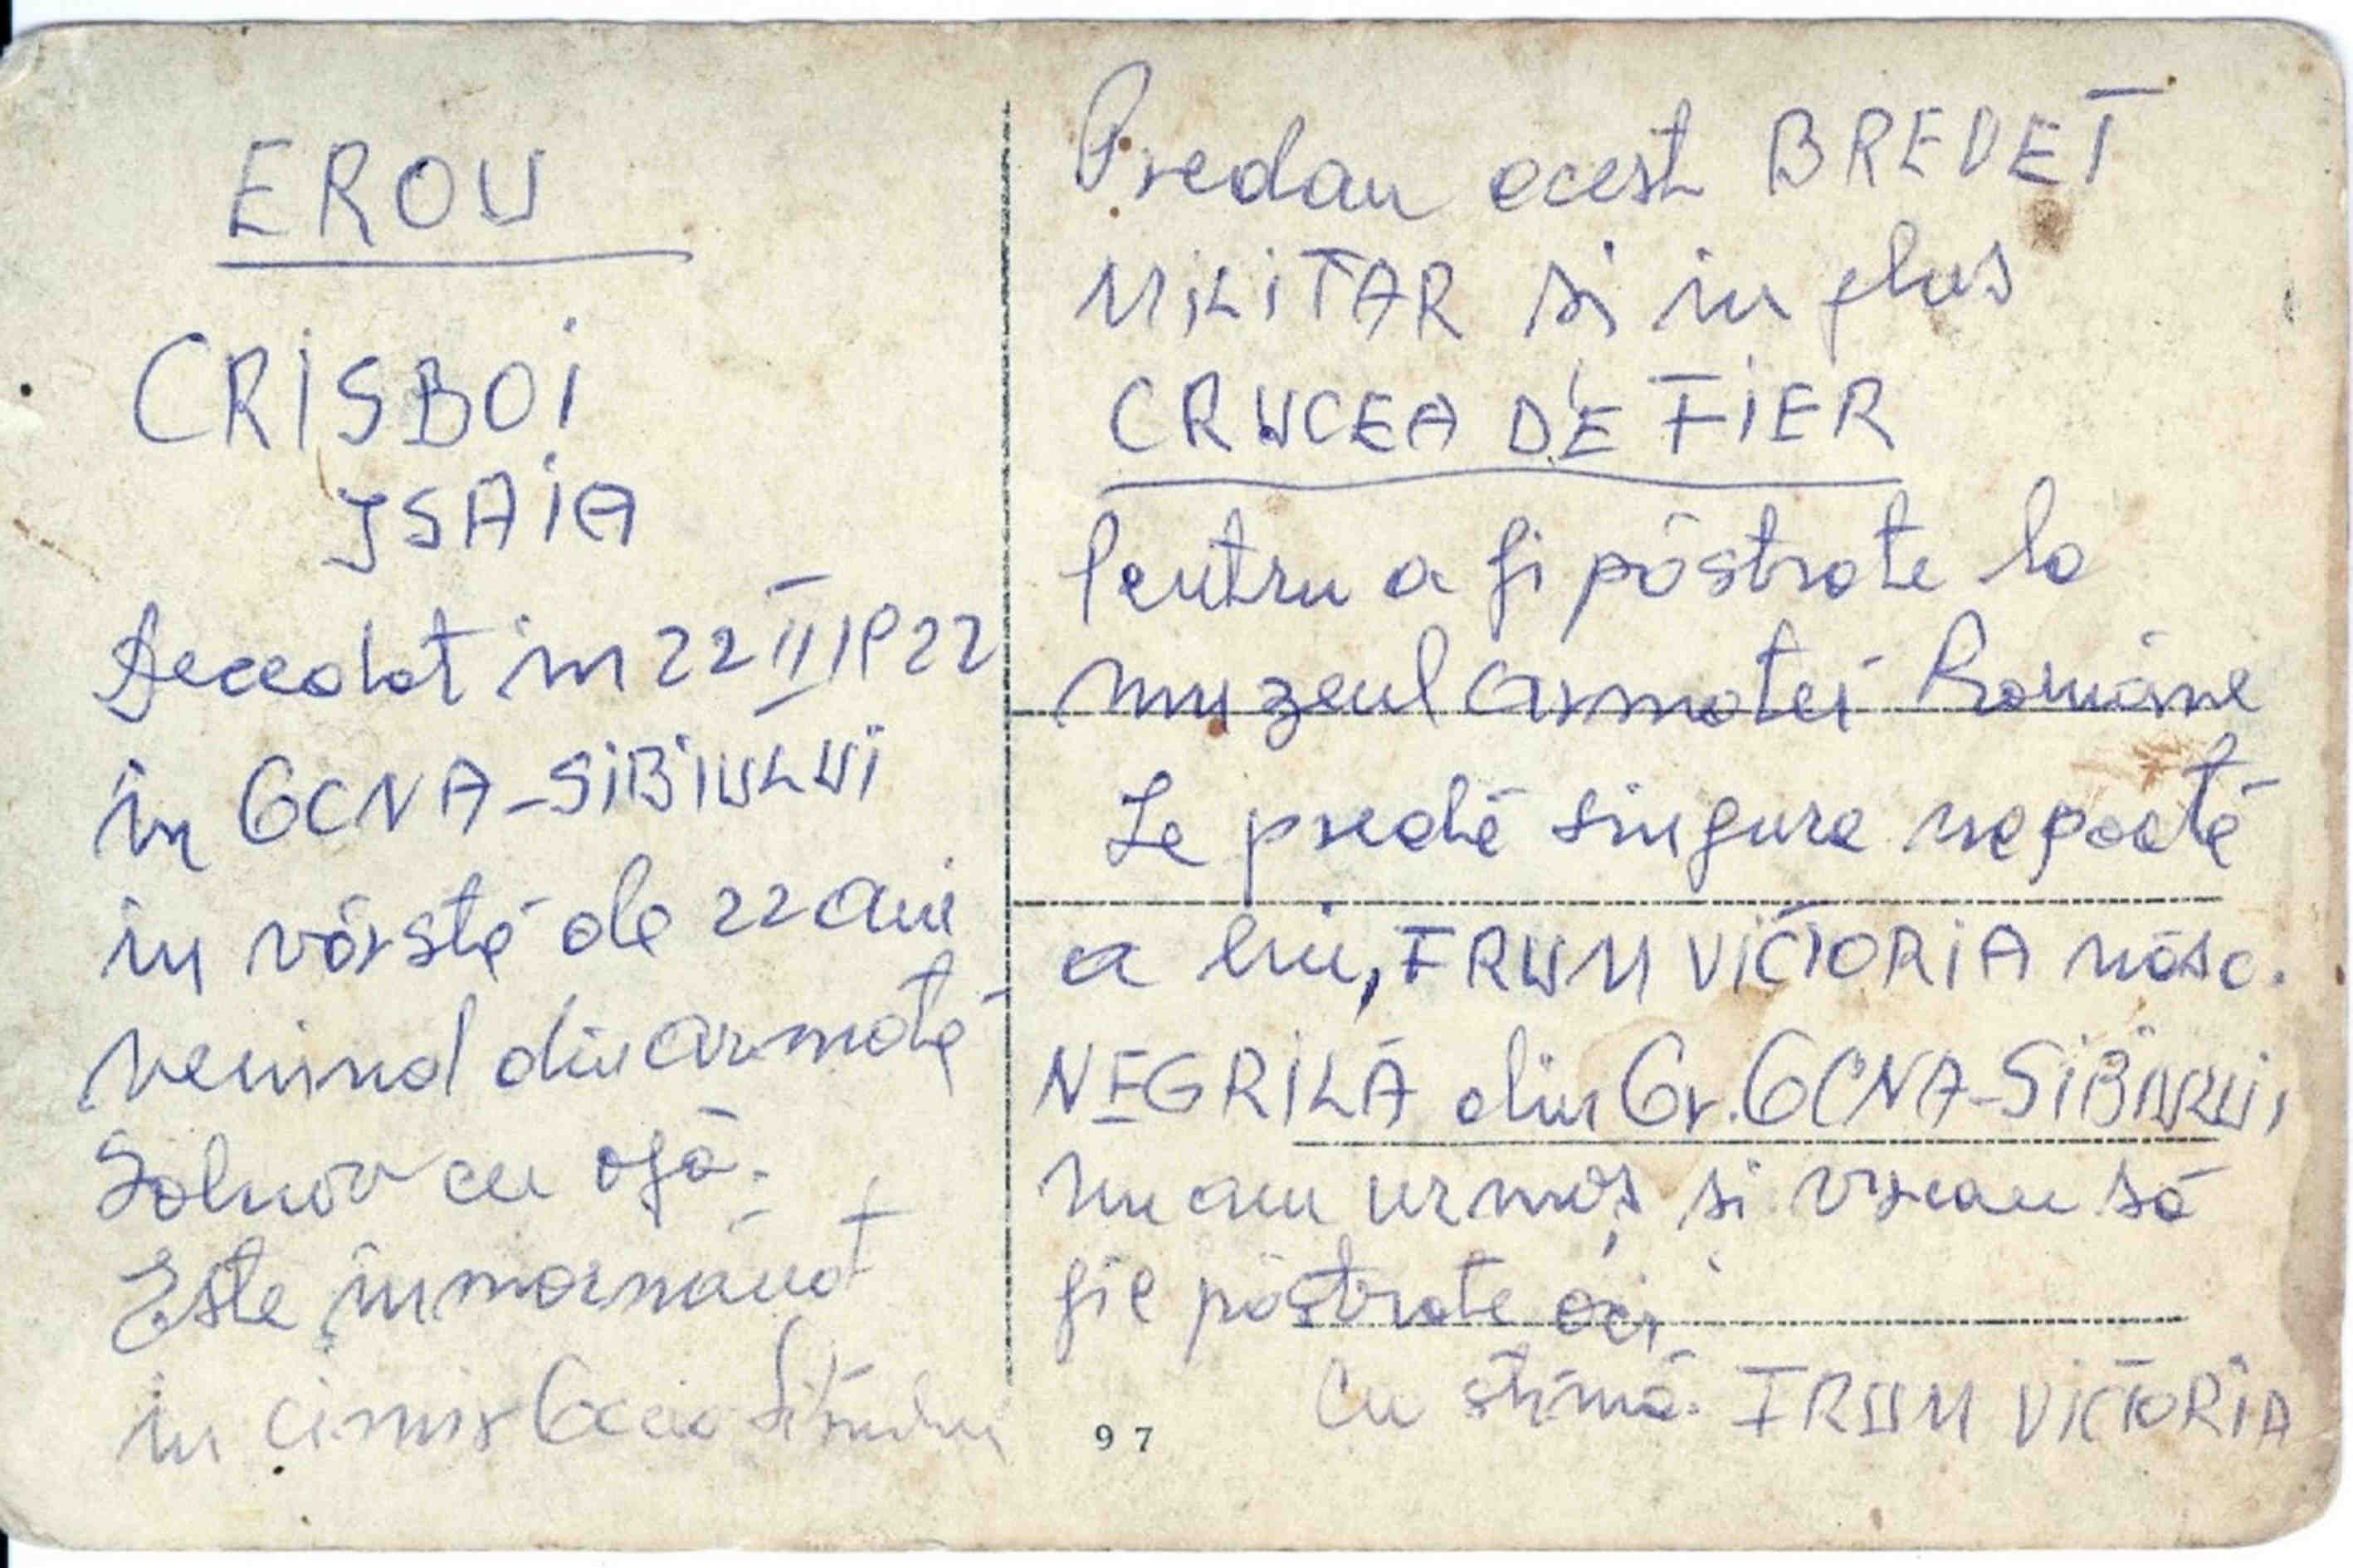 EROU
CRISBOI
ISAIA
Decedat in 22 II 1922
în OCNA-SIBIULUI
în vârstă de 22 ani
venind din armată
bolnav cu
Este înmormânat
în cimit Ocna Sibiului
Predau acest BREVET
MILITAR si in plus
CRUCEA DE FIER
Pentru a fi păstrate la
muzeul armatei Române
Le predă singura nepoată
a lui, FRUM VICTORIA născ.
NEGRILĂ din Or. OCNA-SIBIULUI,
nu am urmaș, si vreau să
fie păstrate aci,
Cu stimă. FRUM VICTORIA
97